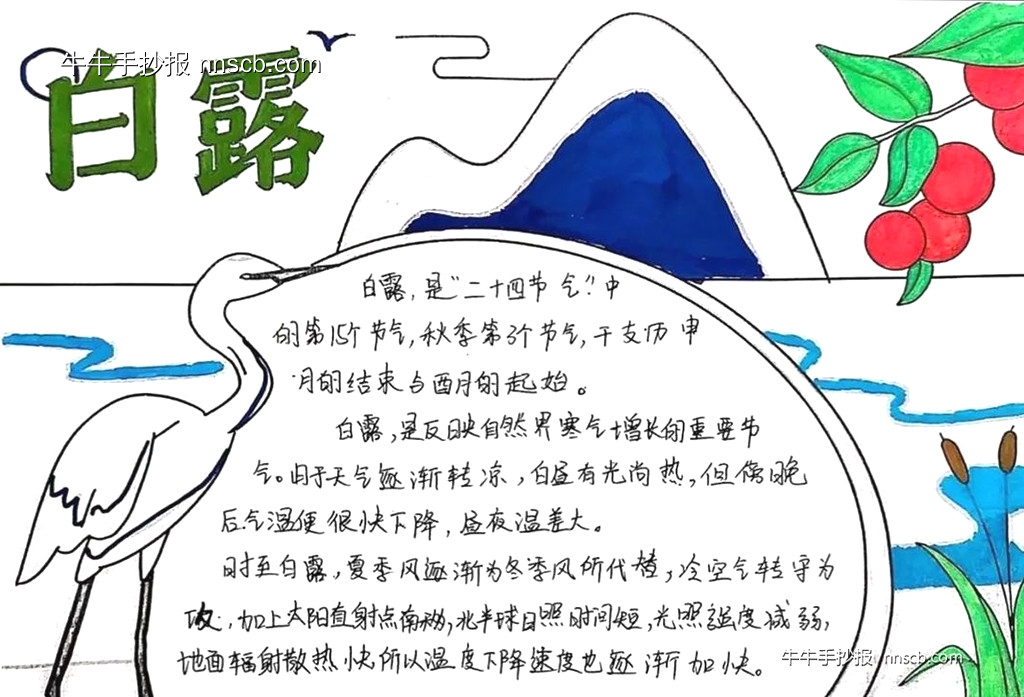 牛牛手抄报 nnscb.com
白露
白露，是“二十四节气”中
的第15个节气，秋季第3个节气，干支历申
月的结束与酉月的起始。
白露，是反映自然界寒气增长的重要节
气。由于天气逐渐转凉，白昼有光尚热，但傍晚
后气温便很快下降，昼夜温差大。
时至白露，夏季风逐渐为冬季风所代替，冷空气转守为
攻，加上太阳直射点南移，北半球日照时间短，光照强度减弱，
地面辐射散热快所以温度下降速度也逐渐加快。
牛牛手抄报 nnscb.com